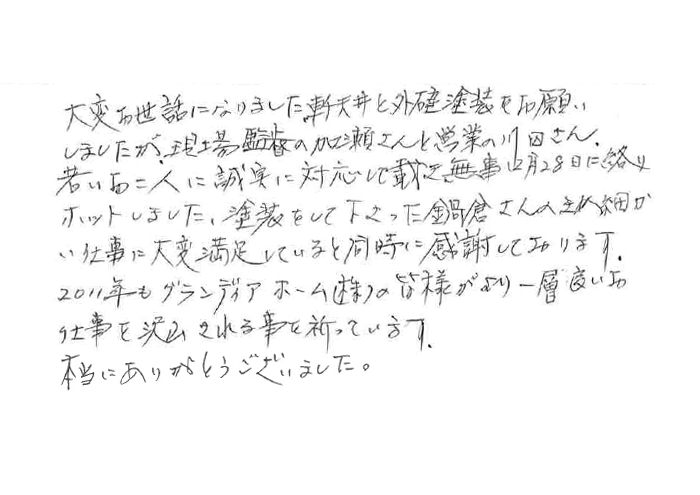 大変お世話になりました。軒天井と外壁塗装をお願い
しましたが、現場監督の加瀬さんと営業の川田さん、
若いお二人に誠実に対応して載き、無事12月28日に終り
ホットしました。塗装をして下さった鍋倉さんのきめ細か
い仕事に大変満足していると同時に感謝しております。
2011年もグランディアホーム(株)の皆様がより一層良いお
仕事を沢山される事を祈っています。
本当にありがとうございました。